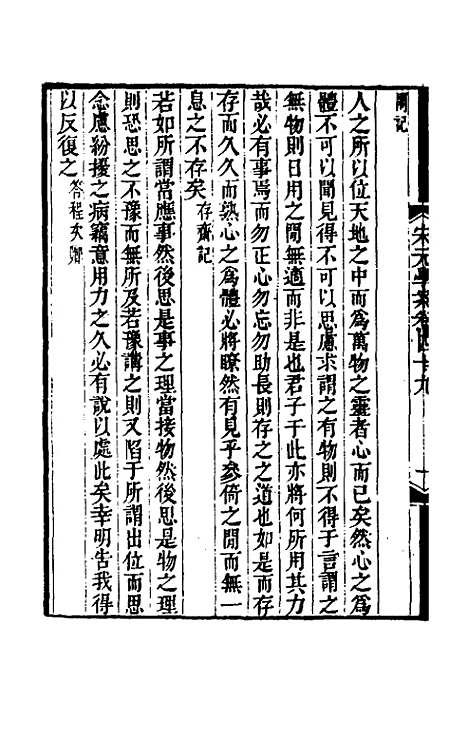 閣記
人之所以位天地之中而爲萬物之靈者心而已矣然心之爲
體不可以聞見得不可以思慮求謂之有物則不得于言謂之
無物則日用之閒無適而非是也君子于此亦將何所用其力
哉必有事焉而勿正心勿忘勿助長則存之之道也如是而存
存而久久而熟心之爲體必將瞭然有見乎參倚之閒而無一
息之不存矣存齋記
若如所謂常應事然後思是事之理當接物然後思是物之理
則恐思之不豫而無所及若豫講之則又陷于所謂出位而思
念慮紛擾之病竊意用力之久必有說以處此矣幸明告我得
以反復之答程次卿
宋元學案卷四十九
十